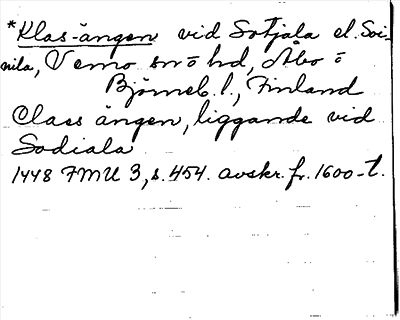 *Klas-ängen vid Sotjala el. Soi-
nila, Vemo sn o hd, Åbo o
Björneb. l., Finland
Claes ängen, liggande vid
Sodiala
1448 FMU 3, s. 454. avskr. fr. 1600-t.